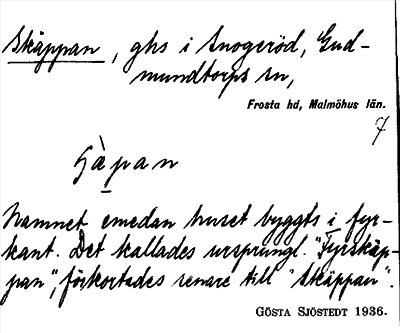 Skäppan, ghs i Snogeröd, Gud-
mundtorps sn,
Frosta hd, Malmöhus län.
7
Namnet emedan huset byggts i fyr-
kant. Det kallades ursprungl. "Fyrskäp-
pan", förkortades senare till "Skäppan".
GÖSTA SJÖSTEDT 1936.